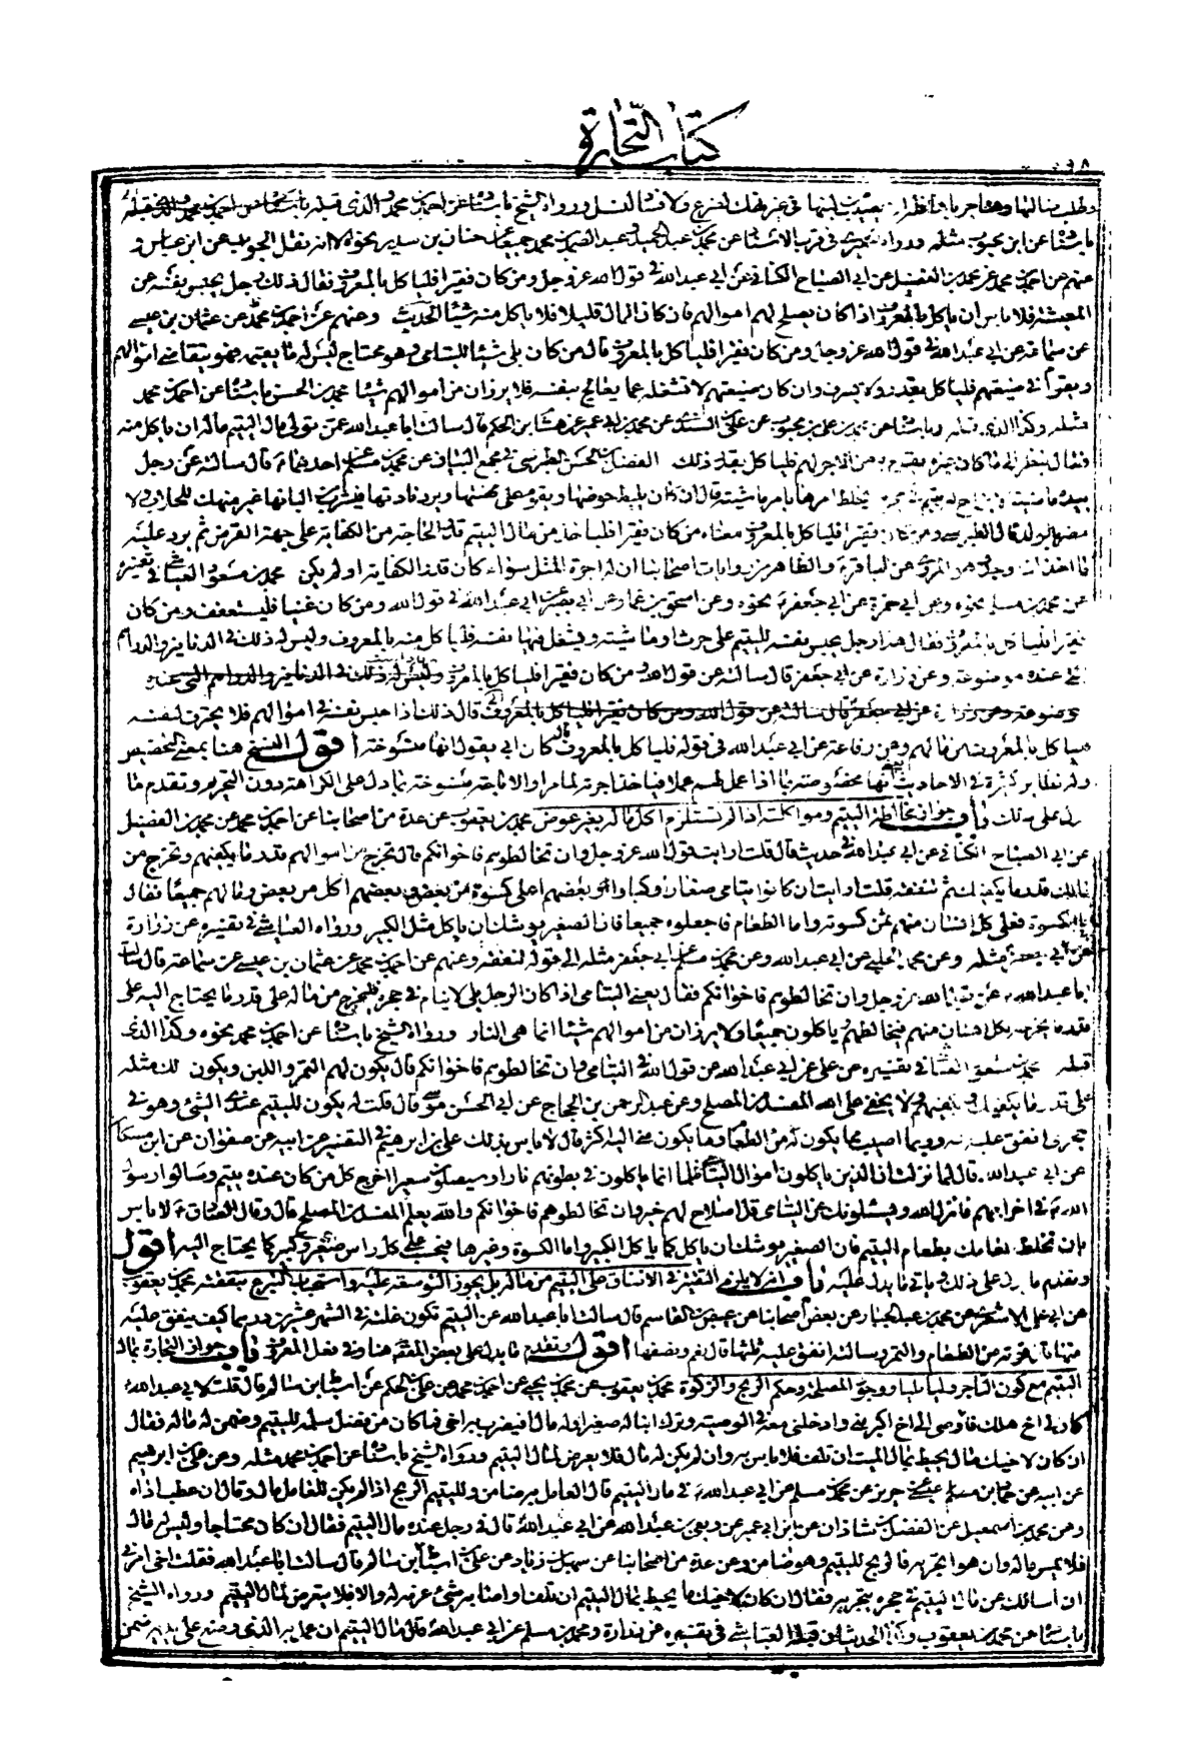 كتاب التجارة
عن ابن محبوب مثله
عنهم عن احمد بن محمد عن محمد بن الفضيل عن ابي الصباح الكناني عن ابي عبد الله في قول الله عز وجل ومن كان فقيرا فلياكل بالمعروف فقال ذلك رجل يحبس نفسه عن
المعيشة فلا باس ان ياكل بالمعروف اذا كان يصلح لهم اموالهم فان كان المال قليلا فلا ياكل منه شيئا الحديث وعنهم عن احمد بن محمد عن عثمان بن عيسى
عن سماعة عن ابي عبد الله في قول الله عز وجل ومن كان فقيرا فلياكل بالمعروف قال من كان يلي شيئا لليتامى وهو محتاج ليس له ما يقيمه فهو يتقاضى اموالهم
ويقوم في ضيعتهم فلياكل بقدر ولا يسرف وان كان ضيعتهم لا تشغله عما يعالج بنفسه فلا يرزان من اموالهم شيئا محمد بن الحسن باسناده عن احمد بن محمد
مثله وكذا الذي قبله وباسناده عن عن هشام بن الحكم قال سالت ابا عبد الله عمن تولى مال اليتيم ماله ان ياكل منه
فقال ينظر الى ما كان غيره يقوم به من الاجر لهم فلياكل بقدر ذلك الفضل بن الحسن الطبرسي في مجمع البيان عن محمد بن مسلم عن احدهما قال سالته عن رجل
بيده ماشية لابن اخ له يتيم في حجره يخلط امرها بامر ماشيته قال ان كان يليط حوضها ويقوم على مهنتها ويرد نادتها فليشرب من البانها غير منهك للحلاب ولا
مضر بالولد قال الطبرسي ومن كان فقيرا فلياكل بالمعروف معناه من كان فقيرا فلياخذ من مال اليتيم قدر الحاجة من الكفاية على جهة القرض ثم يرد عليه
ما اخذ اذا وجد وهو المروي عن الباقر والظاهر من روايات اصحابنا ان له اجرة المثل سواء كان قدر الكفاية او لم يكن محمد بن مسعود العياشي في تفسيره
عن محمد بن مسلم نحوه وعن ابي حمزة عن ابي جعفر نحوه وعن اسحق بن عمار عن ابي بصير عن ابي عبد الله في قول الله ومن كان غنيا فليستعفف ومن كان
فقيرا فلياكل بالمعروف فقال هذا رجل يحبس نفسه لليتيم على حرث او ماشية ويشغل فيها نفسه فلياكل منه بالمعروف وليس له ذلك في الدنانير والدراهم
التي عنده موضوعة وعن زرارة عن ابي جعفر قال سالته عن قول الله ومن كان فقيرا فلياكل بالمعروف وليس له ذلك في الدنانير والدراهم التي عنده
موضوعة وعن زرارة عن ابي جعفر قال سالته عن قول الله ومن كان فقيرا فلياكل بالمعروف قال ذلك اذا حبس نفسه في اموالهم فلا يحترث لنفسه
فلياكل بالمعروف من مالهم وعن رفاعة عن ابي عبد الله في قوله فلياكل بالمعروف قال كان ابي يقول انها منسوخة اقول النسخ هنا بمعنى التخصيص
وله نظاير كثيرة في الاحاديث لانها مخصوصة بما اذا عمل لهم عملا فياخذ اجرته لما مر او الاباحة منسوخة بما دل على الكراهة دون التحريم وتقدم ما
يدل على ذلك باب جواز مخالطة اليتيم ومواكلته اذا لم يستلزم اكل ماله بغير عوض محمد بن يعقوب عن عدة من اصحابنا عن احمد بن محمد عن محمد بن الفضيل
عن ابي الصباح الكناني عن ابي عبد الله في حديث قال قلت ارايت قول الله عز وجل وان تخالطوهم فاخوانكم قال تخرج من اموالهم قدر ما يكفيهم وتخرج من
مالك قدر ما يكفيك ثم تنفقه قلت ارايت ان كانوا يتامى صغارا وكبارا وبعضهم اعلى كسوة من بعض وبعضهم اكل من بعض ومالهم جميعا فقال
اما الكسوة فعلى كل انسان منهم ثمن كسوته واما الطعام فاجعلوه جميعا فان الصغير يوشك ان ياكل مثل الكبير ورواه العياشي في تفسيره عن زرارة
عن ابي جعفر مثله وعن محمد الحلبي عن ابي عبد الله وعن محمد بن مسلم عن ابي جعفر مثله الى قوله تنفقه وعنهم عن احمد بن محمد عن عثمان بن عيسى عن سماعة قال سالت
ابا عبد الله عن قول الله عز وجل وان تخالطوهم فاخوانكم فقال يعني اليتامى اذا كان الرجل يلي لايتام في حجره فليخرج من ماله على قدر ما يحتاج اليه على
قدر ما يخرجه لكل انسان منهم فيخالطهم وياكلون جميعا ولا يرزان من اموالهم شيئا انما هي النار ورواه الشيخ باسناده عن احمد بن محمد نحوه وكذا الذي
قبله محمد بن مسعود العياشي في تفسيره عن علي عن ابي عبد الله عن قول الله في اليتامى وان تخالطوهم فاخوانكم قال يكون لهم التمر واللبن ويكون لك مثله
على قدر ما يكفيك ويكفيهم ولا يخفى على الله المفسد من المصلح وعن عبد الرحمن بن الحجاج عن ابي الحسن موسى قال قلت له يكون لليتيم عندي الشيء وهو في
حجري انفق عليه منه وربما اصيب مما يكون له من الطعام وما يكون مني اليه اكثر قال لا باس بذلك علي بن ابرهيم في التفسير عن ابيه عن صفوان عن ابن مسكان
عن ابي عبد الله قال لما نزلت ان الذين ياكلون اموال اليتامى ظلما انما ياكلون في بطونهم نارا وسيصلون سعيرا اخرج كل من كان عنده يتيم وسالوا رسول
الله في اخراجهم فانزل الله ويسئلونك عن اليتامى قل اصلاح لهم خير وان تخالطوهم فاخوانكم والله يعلم المفسد من المصلح قال وقال الصادق لا باس
بان تخلط طعامك بطعام اليتيم فان الصغير يوشك ان ياكل كما ياكل الكبير واما الكسوة وغيرها فيحسب على كل راس صغير وكبير كما يحتاج اليه اقول
وتقدم ما يدل على ذلك وياتي ما يدل عليه باب انه لا يلزم التقتير في الانفاق على اليتيم من ماله بل يجوز التوسعة عليه واستحباب التبرع بنفقته محمد بن يعقوب
عن ابي علي الاشعري عن محمد بن عبد الجبار عن بعض اصحابنا عن عيص بن القاسم قال سالت ابا عبد الله عن اليتيم تكون غلته في الشهر عشرين درهما كيف ينفق عليه
منها قال قوته من الطعام والتمر وسالته انفق عليه ثلثها قال نعم ونصفها اقول وتقدم ما يدل على بعض المقصود هنا وفي فعل المعروف باب جواز التجارة بمال
اليتيم مع كون التاجر وليا مليا ووجود المصلحة وحكم الربح والزكوة محمد بن يعقوب عن محمد بن يحيى عن احمد بن محمد عن علي بن الحكم عن اسباط بن سالم قال قلت لابي عبد الله
كان لي اخ هلك فاوصى الى اخ اكبر مني وادخلني معه في الوصية وترك ابنا له صغيرا وله مال افيضرب به اخي فما كان من فضل سلمه لليتيم وضمن له ماله فقال
ان كان لاخيك مال يحيط بمال اليتيم ان تلف فلا باس به وان لم يكن له مال فلا يعرض لمال اليتيم ورواه الشيخ باسناده عن احمد بن محمد مثله وعن علي بن ابرهيم
عن ابيه عن حماد بن عيسى عن حريز عن محمد بن مسلم عن ابي عبد الله في مال اليتيم قال العامل به ضامن ولليتيم الربح اذا لم يكن للعامل مال وقال ان عطب اداه
وعن محمد بن اسمعيل عن الفضل بن شاذان عن ابن ابي عمير عن ربعي بن عبد الله عن ابي عبد الله قال في رجل عنده مال اليتيم فقال ان كان محتاجا وليس له مال
فلا يمس ماله وان هو اتجر به فالربح لليتيم وهو ضامن وعن عدة من اصحابنا عن سهل بن زياد عن علي بن اسباط عن اسباط بن سالم قال سالت ابا عبد الله فقلت اخي امرني
ان اسالك عن مال اليتيم في حجره يتجر به فقال ان كان لاخيك ما يحيط بمال اليتيم ان تلف او اصابه شيء غرمه له والا فلا يتعرض لمال اليتيم ورواه الشيخ
باسناده عن محمد بن يعقوب وكذا الحديثان قبله العياشي في تفسيره عن زرارة ومحمد بن مسلم عن ابي عبد الله قال مال اليتيم ان عمل به الذي وضع على يديه ضمن